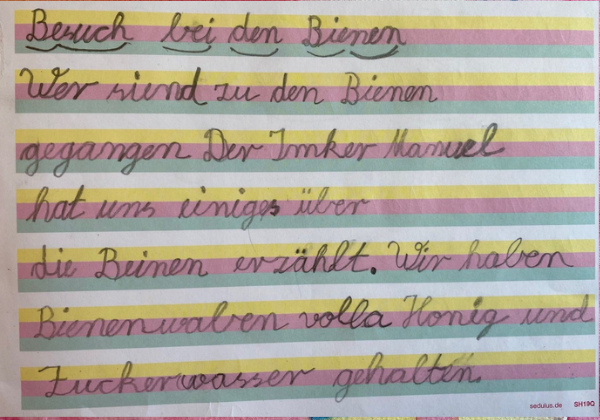 Besuch bei den Bienen
Wer siend zu den Bienen
gegangen Der Imker Manuel
hat uns einiges über
die Beinen erzählt. Wir haben
Bienenwaben volla Honig und
Zuckerwasser gehalten.
sedulus.de SH19G